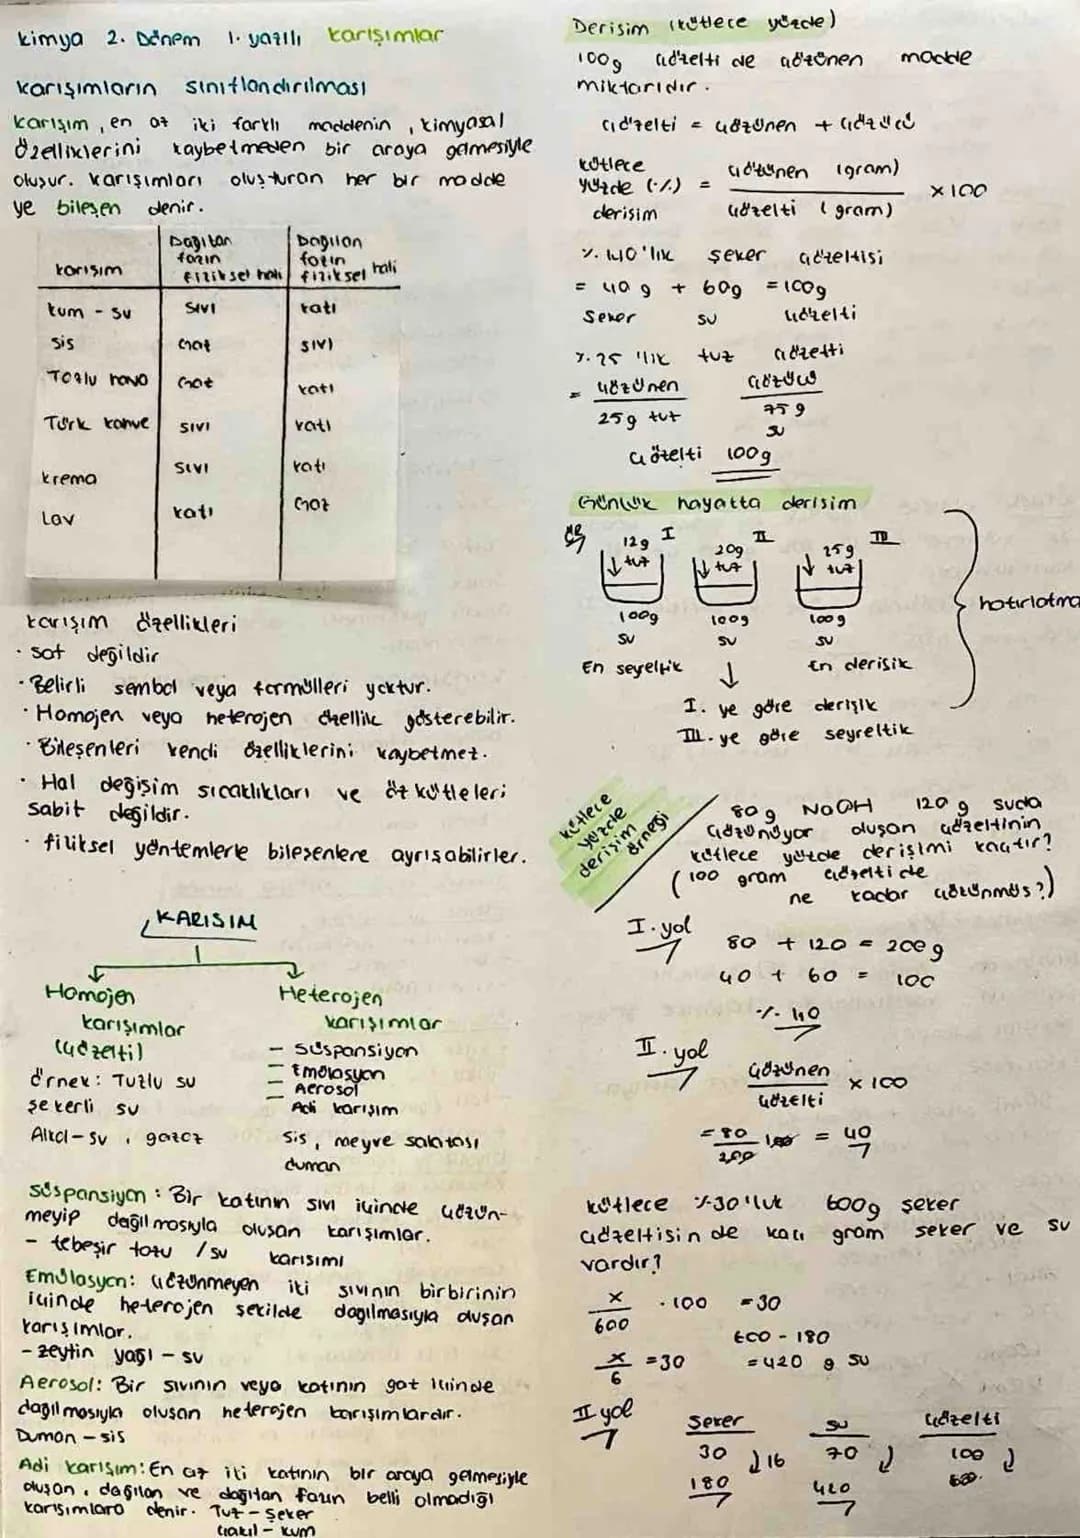 kimya 2. Dönem 1. yazılı karışımlar
karışımların sınıflandırılması
karışım, en az iki farklı maddenin, kimyasal
özelliklerini kaybetmeden bir araya gelmesiyle
oluşur. karışımları oluşturan her bir madde
ye bileşen denir.
karışım | Dağıtan fazın fiziksel hali | Dağılan fazın fiziksel hali
kum - su | sıvı | katı
sis | Gaz | sıvı
Tozlu hava | Gaz | katı
Türk kahve | sıvı | katı
krema | sıvı | katı
Lav | katı | Gaz
karışım özellikleri
· saf değildir
· Belirli sembol veya formülleri yoktur.
· Homojen veya heterojen özellik gösterebilir.
· Bileşenleri kendi özelliklerini kaybetmez.
· Hal değişim sıcaklıkları ve öz kütleleri
sabit değildir.
· fiziksel yöntemlerle bileşenlere ayrışabilirler.
KARISIM
Homojen
karışımlar
(çözelti)
örnek: Tuzlu su
şekerli su
Alkol - su, gazoz
Heterojen
karışımlar
- süspansiyon
- Emülasyon
- Aerosol
- Adi karışım
sis, meyve salatası
duman
süspansiyon: Bir katının sıvı içinde çözün-
meyip dağılmasıyla oluşan karışımlar.
- tebeşir tozu / su karısımı
Emülasyon: Çözünmeyen iki sıvının birbirinin
içinde heterojen şekilde dağılmasıyla oluşan
karışımlar.
- zeytin yağı - su
Aerosol: Bir sıvının veya katının gaz içinde
dağılmasıyla oluşan heterojen karışımlardır.
Duman - sis
Adi karışım: En az iki katının bir araya gelmesiyle
oluşan, dağılan ve dağıtan fazın belli olmadığı
karışımlara denir. Tuz - Şeker
Çakıl - kum
Derişim (kütlece yüzde)
100g çözelti de çözünen madde
miktarıdır.
çözelti = çözünen + çözücü
kütlece yüzde (%) derişim = çözünen (gram) / çözelti (gram) x 100
%40'lık şeker çözeltisi
= 40 g + 60g = 100g
Şeker su çözelti
%25 'lik tuz çözelti
= çözünen çözücü
25g tuz 75 g
su
çözelti 100g
Günlük hayatta derişim
ÖR 12g tuz I 20g tuz II 25g tuz III
100g su 100g su 100g su
hatırlatma
En seyeltik En derişik
I. ye göre derişik
III. ye göre seyreltik
kütlece
yüzde
derişim
örneği
80 g NaOH 120 g suda
çözünüyor oluşan çözeltinin
kütlece yüzde derişimi kaçtır?
(100 gram çözelti de
ne kadar çözünmüş?)
I. yol
80 + 120 = 200 g
40 + 60 = 100
% 40
II. yol
çözünen / çözelti x 100
= 80 / 200 100 = 40
kütlece %30'luk 600g şeker
çözeltisin de kaç gram şeker ve su
vardır?
x / 600 · 100 = 30
600 - 180
x / 6 = 30
= 420 g su
II yol
Şeker su çözelti
30 ↓16 70 ↓ 100 ↓
180 420 600